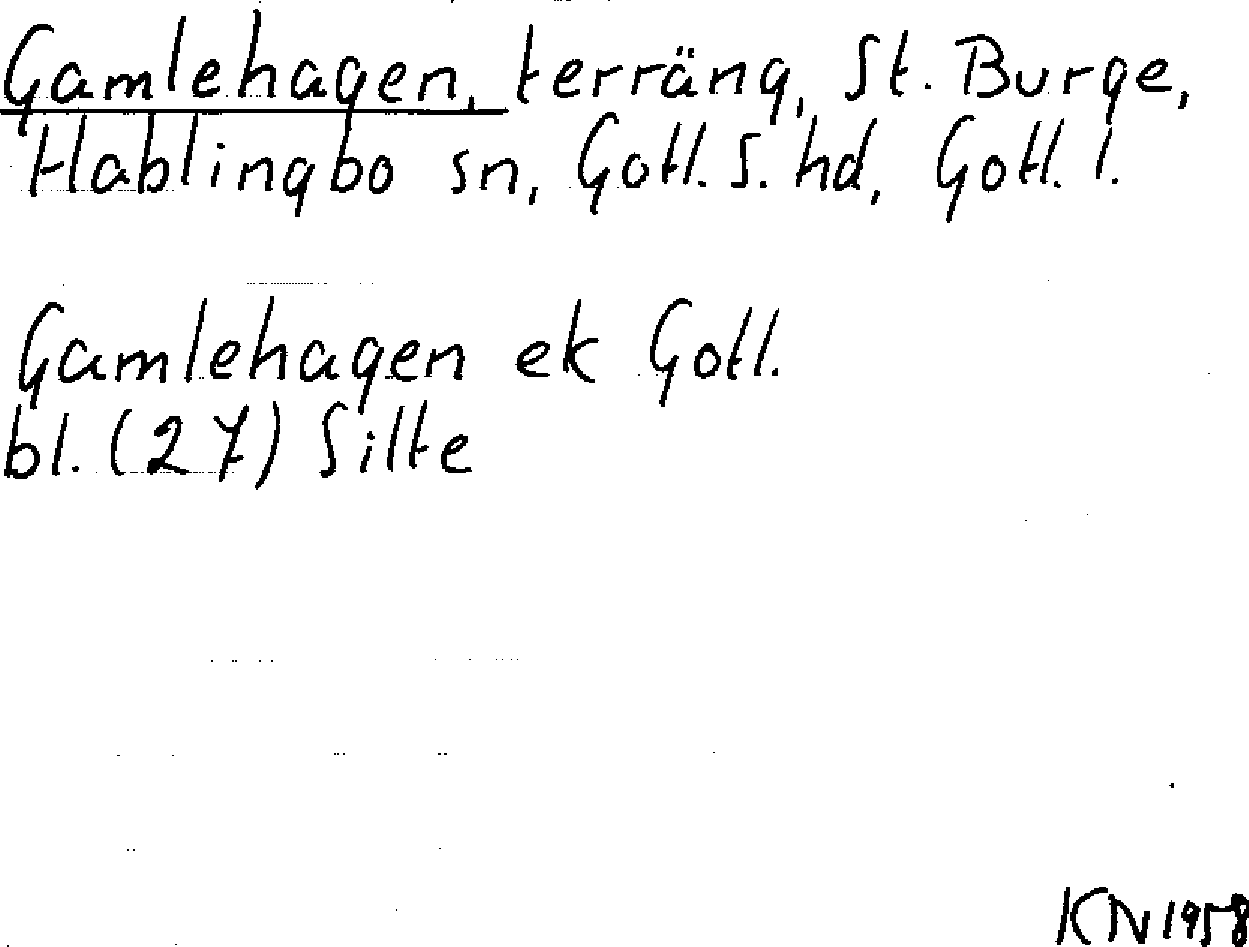 Gamlehagen, terräng, St. Burge,
Hablingbo sn, Gotl. S. hd, Gotl. l.
Gamlehagen ek Gotl.
bl. (27) Silte
KN 1958